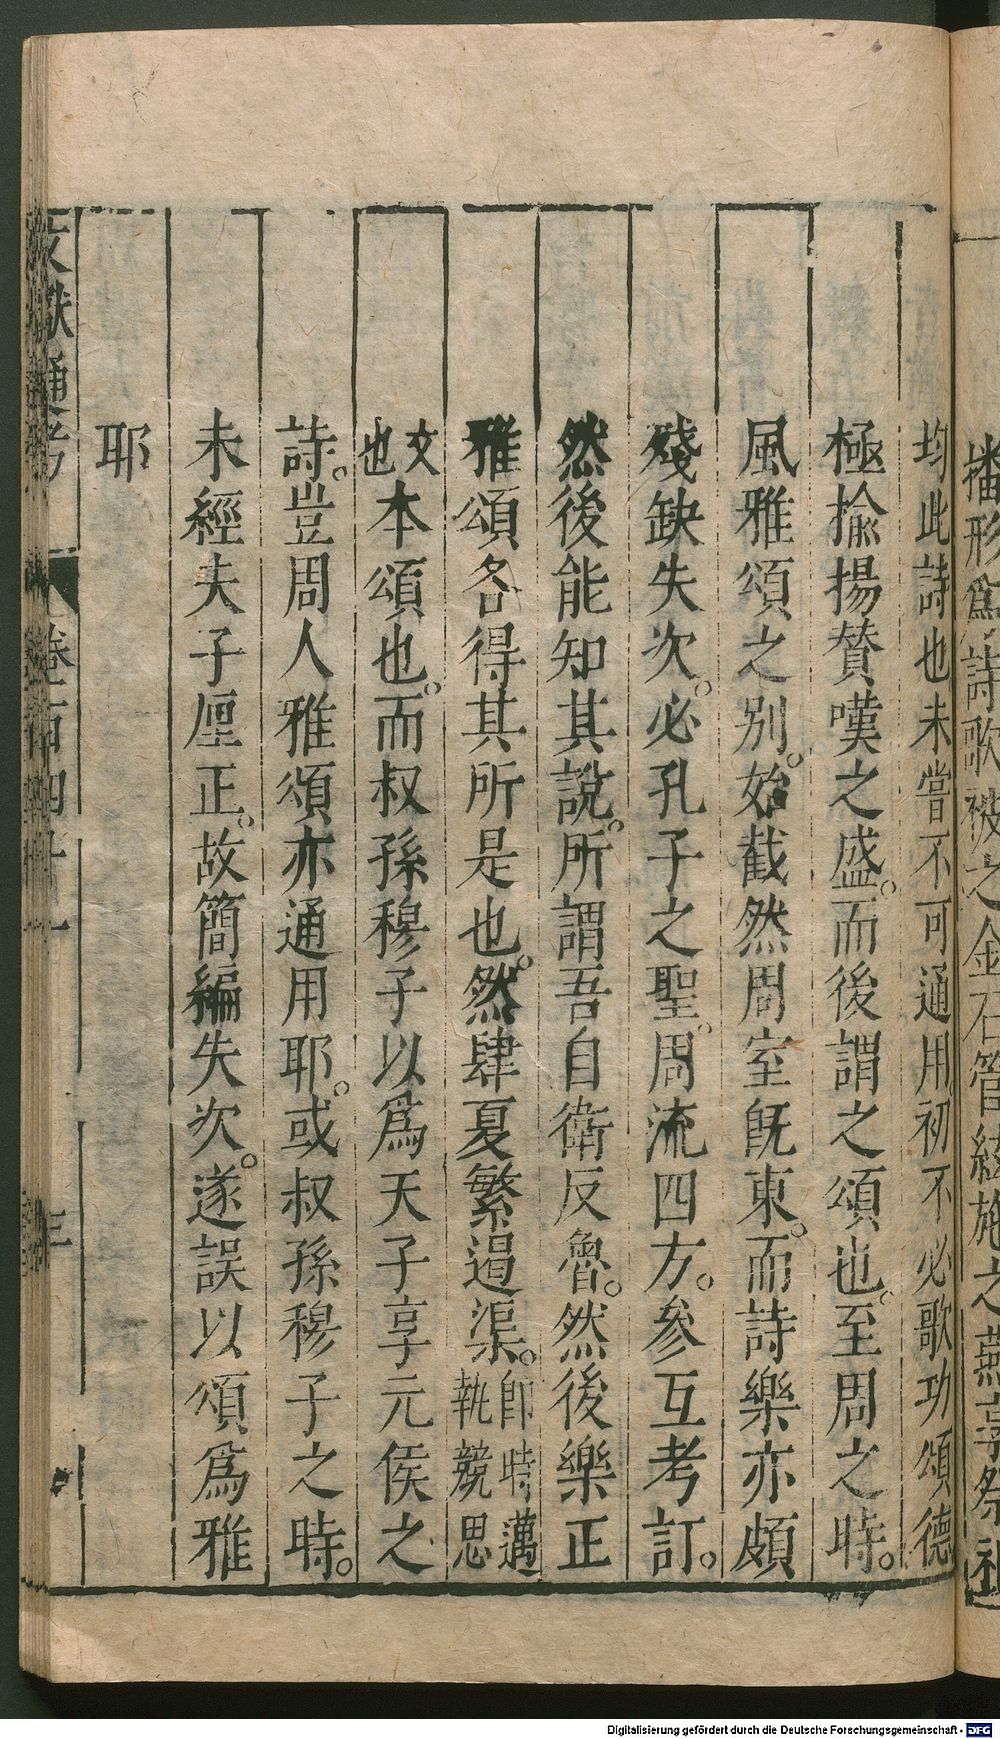 播形爲詩歌被之金石管絃施之燕享祭祀
均此詩也未嘗不可通用初不必歌功頌德
極揄揚賛嘆之盛。而後謂之頌也。至周之時。
風雅頌之別。始截然周室旣東。而詩樂亦頗
殘缺失次。必孔子之聖。周流四方。參互考訂。
然後能知其說。所謂吾自衛反魯。然後樂正
雅頌各得其所是也。然肆夏繁遏渠。即時邁執競思
文也本頌也。而叔孫穆子以爲天子享元侯之
詩。豈周人雅頌亦通用耶。或叔孫穆子之時。
未經夫子厘正。故簡編失次。遂誤以頌爲雅
耶
文獻通考 卷一百四十一 三
Digitalisierung gefördert durch die Deutsche Forschungsgemeinschaft - DFG